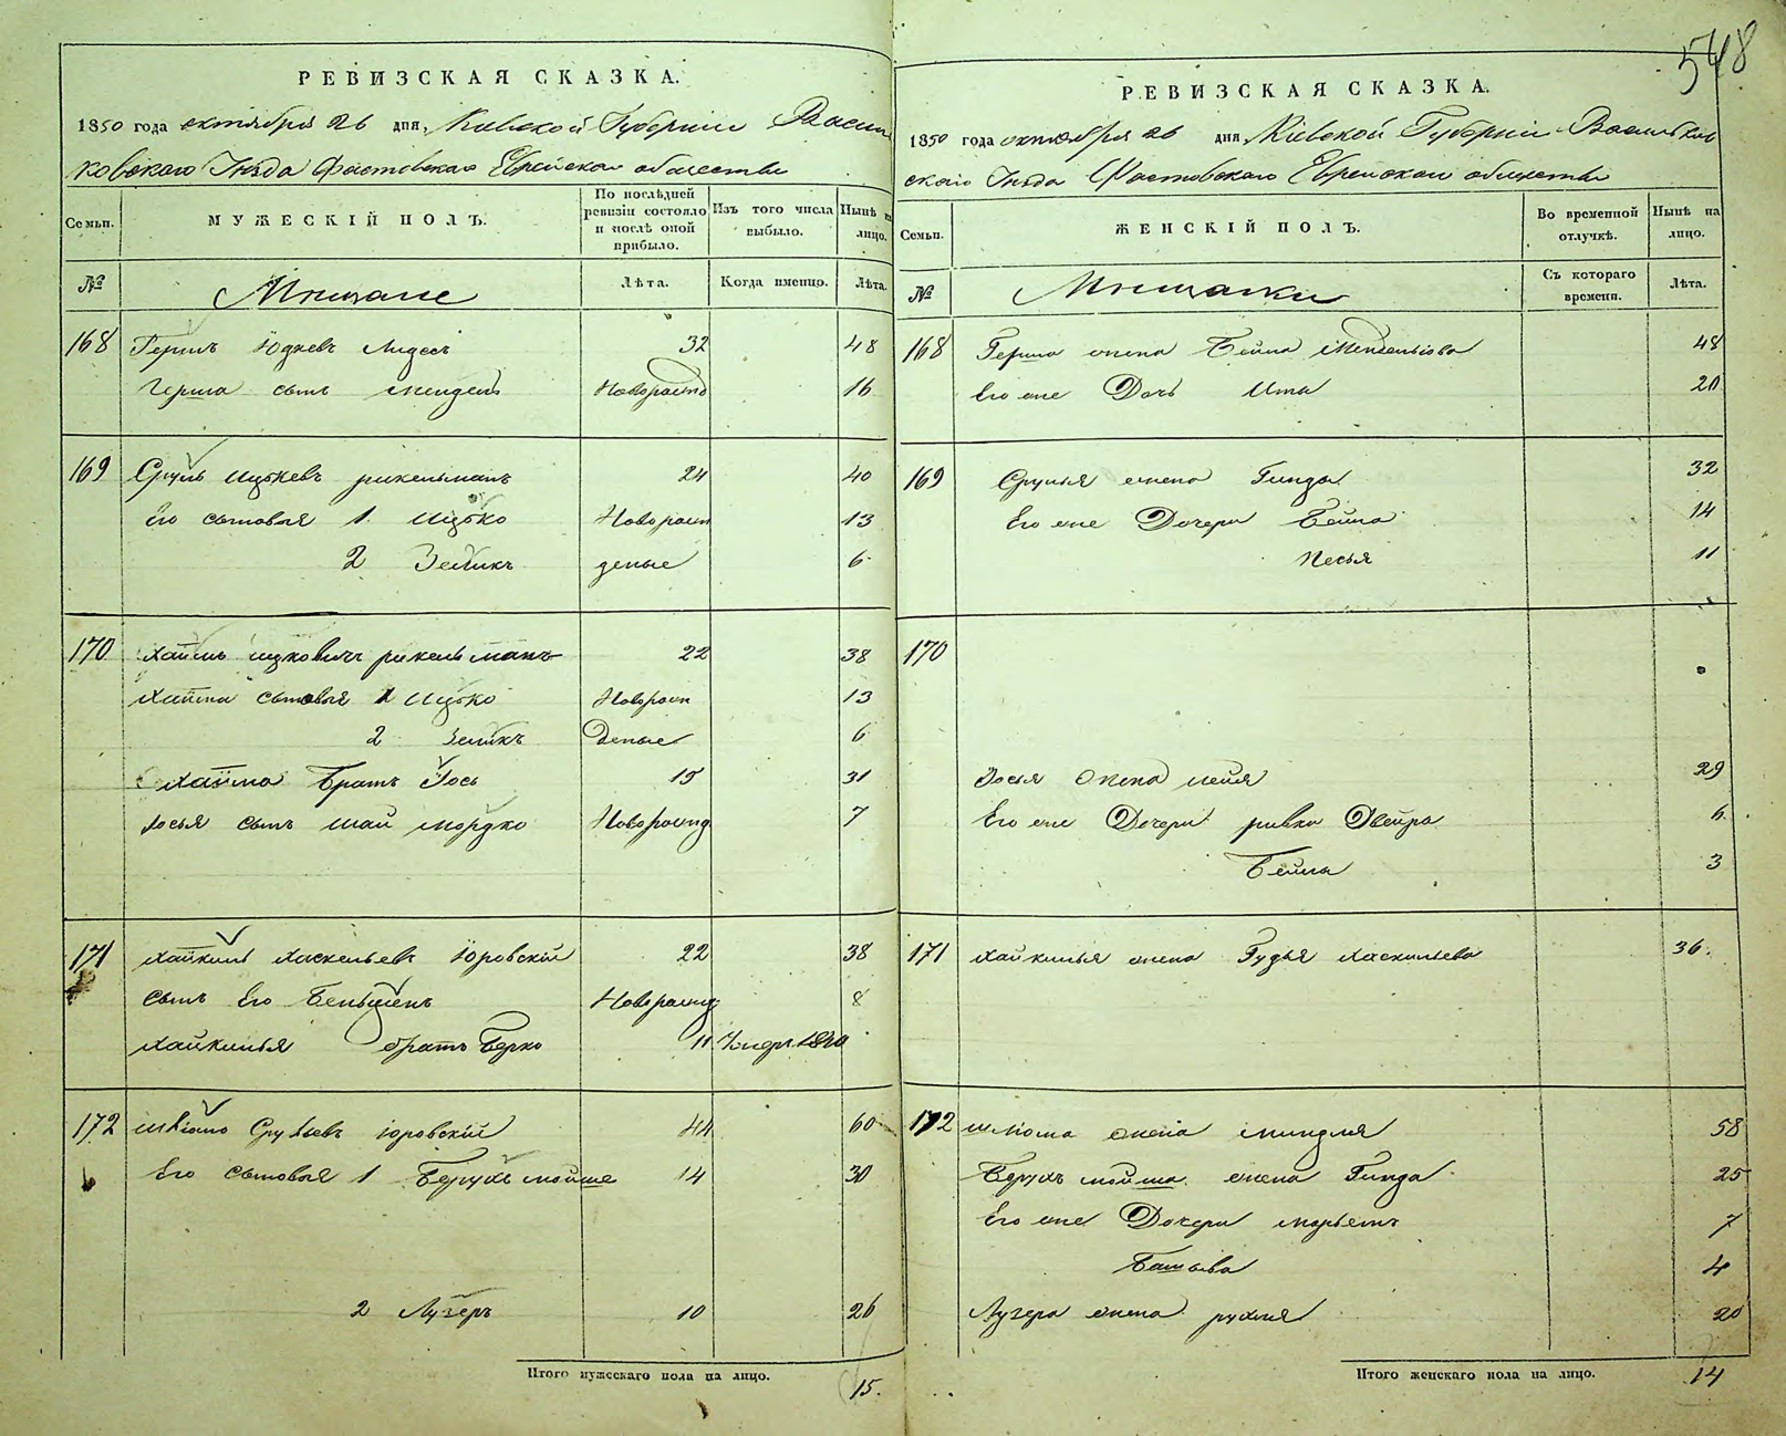 548
РЕВИЗСКАЯ СКАЗКА.
1850 года октября 26 дня, Киевской Губернии Василь
ковскаго Уѣзда Фастовскаго Еврейскаго общества
Семьи.
МУЖЕСКІЙ ПОЛЪ.
По послѣдней ревизіи состояло и послѣ оной прибыло.
Изъ того числа выбыло.
Нынѣ на лицо.
№
Мещане
Лѣта.
Когда именно.
Лѣта.
168 Гершъ Юдкевъ 32 48
Герша сынъ Мендель Новорожд 16
169 Сруль Ицковъ рикельманъ 24 40
Его сыновья 1 Ицько Новорож 13
2 Зеликъ деные 6
170 Хаимъ ицковичъ рикельманъ 22 38
Хаима сыновья 1 Ицько Новорож 13
2 Зеликъ деные 6
Хаима братъ Іось 15 31
Іосья сынъ Шая мордко Новорожд 7
171 Хайкиль Хаскелевъ Юровскій 22 38
сынъ Его Беньюменъ Новорожд 8
Хайкилья братъ Берко 11 Умеръ 1840
172 Шліомо Срулевъ юровскій 44 60
Его сыновья 1 Борухъ мойше 14 30
2 Лузеръ 10 26
Итого мужескаго пола на лицо. 15.
РЕВИЗСКАЯ СКАЗКА.
1850 года октября 26 дня, Киевской Губерніи Васильков
скаго Уѣзда Фастовскаго Еврейскаго общества
Семьи.
ЖЕНСКІЙ ПОЛЪ.
Во временной отлучкѣ.
Нынѣ на лицо.
№
Мещанки
Съ котораго времени.
Лѣта.
168 Герша жена Бейла Менделіова 48
Его же Дочь Ита 20
169 Срулья жена Гинда 32
Его же Дочери Бейла 14
Песья 11
170
Іосья жена лея 29
Его же Дочери ривка Двейра 6
Бейла 3
171 Хайкилья жена Гудья Хаскилева 36.
172 шлиома жена миндля 58
Борухъ мойша жена Гинда 25
Его же Дочери марьемъ 7
Башева 4
Лузера жена рухля 20
Итого женскаго пола на лицо. 14